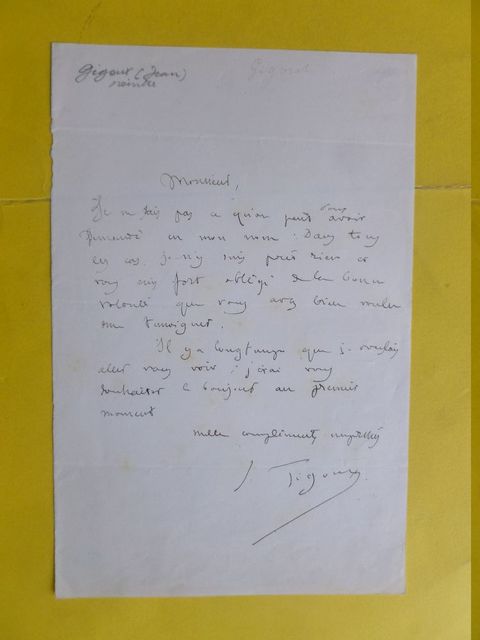 Gigoux (Jean)
peintre
Gigoux
Monsieur,
Je ne sais pas ce qu'on peut vous avoir
demandé en mon nom : Dans tous
les cas, je n'y suis pour rien et
vous suis fort obligé de la bonne
volonté que vous avez bien voulu
me témoigner.
Il y a longtemps que je voulais
aller vous voir ; j'irai vous
souhaiter le bonjour au premier
moment
mille compliments empressés
J. Gigoux